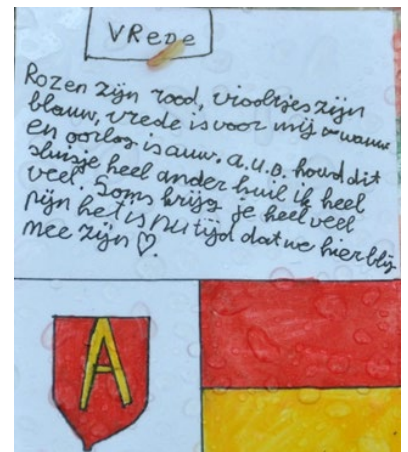 VRede
Rozen zijn rood, viooltjes zijn
blauw, vrede is voor mij wauw
en oorlog is auw. a.u.b. houd dit
sluisje heel ander huil ik heel
veel. Soms krijg je heel veel
pijn het is nu tijd dat we hier blij
mee zijn ♡.
A